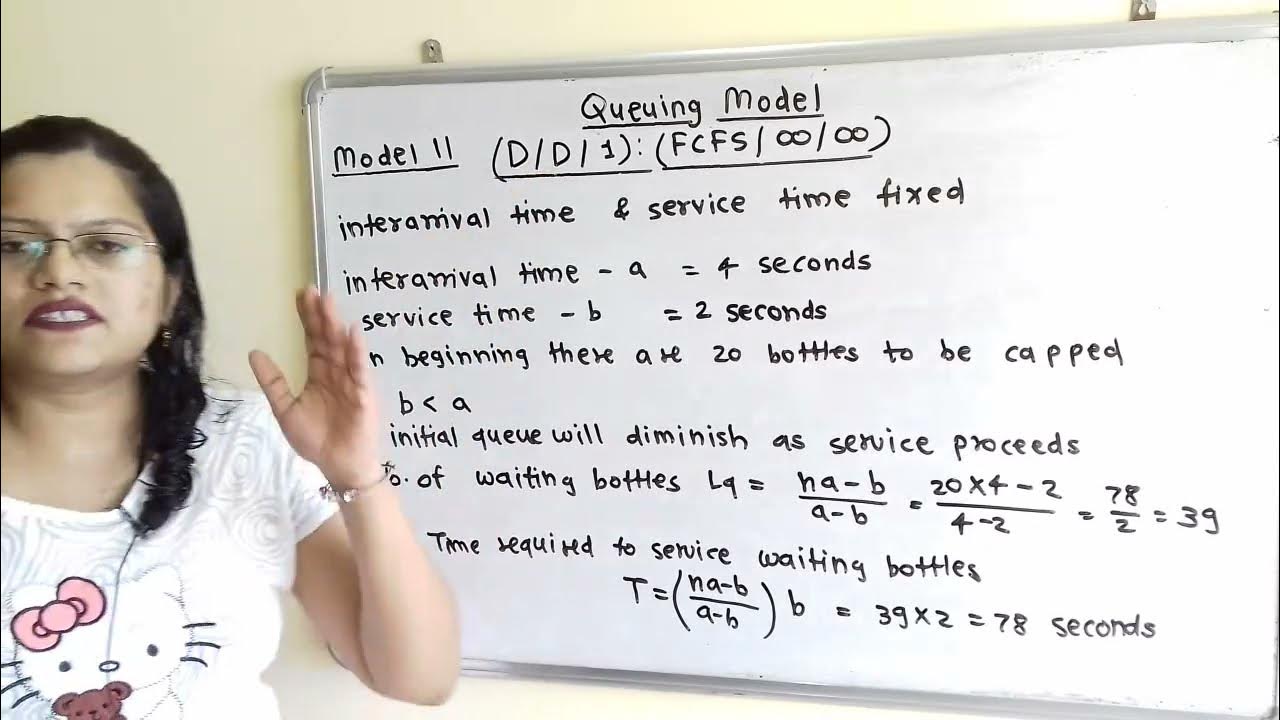 Queuing Model
Model II (D/D/1):(FCFS/∞/∞)
interarrival time & service time fixed
interarrival time - a = 4 seconds
service time - b = 2 seconds
n beginning there are 20 bottles to be capped
b < a
initial queue will diminish as service proceeds
o. of waiting bottles Lq = na-b/a-b = 20×4-2/4-2 = 78/2 = 39
Time required to service waiting bottles
T = (na-b/a-b) b = 39×2 = 78 seconds